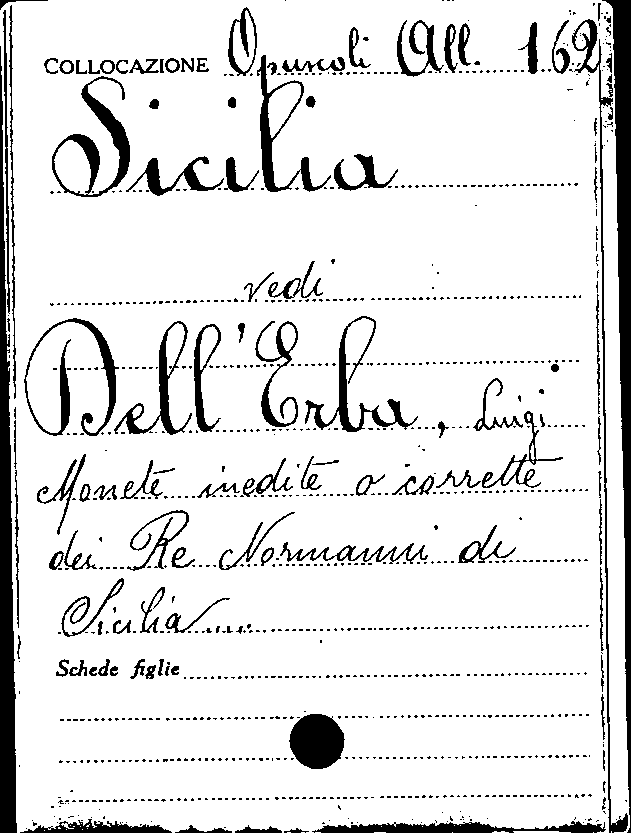 COLLOCAZIONE Opuscoli All. 162
Sicilia
vedi
Dell'Erba, Luigi
Monete inedite o corrette
dei Re Normanni di
Sicilia....
Schede figlie